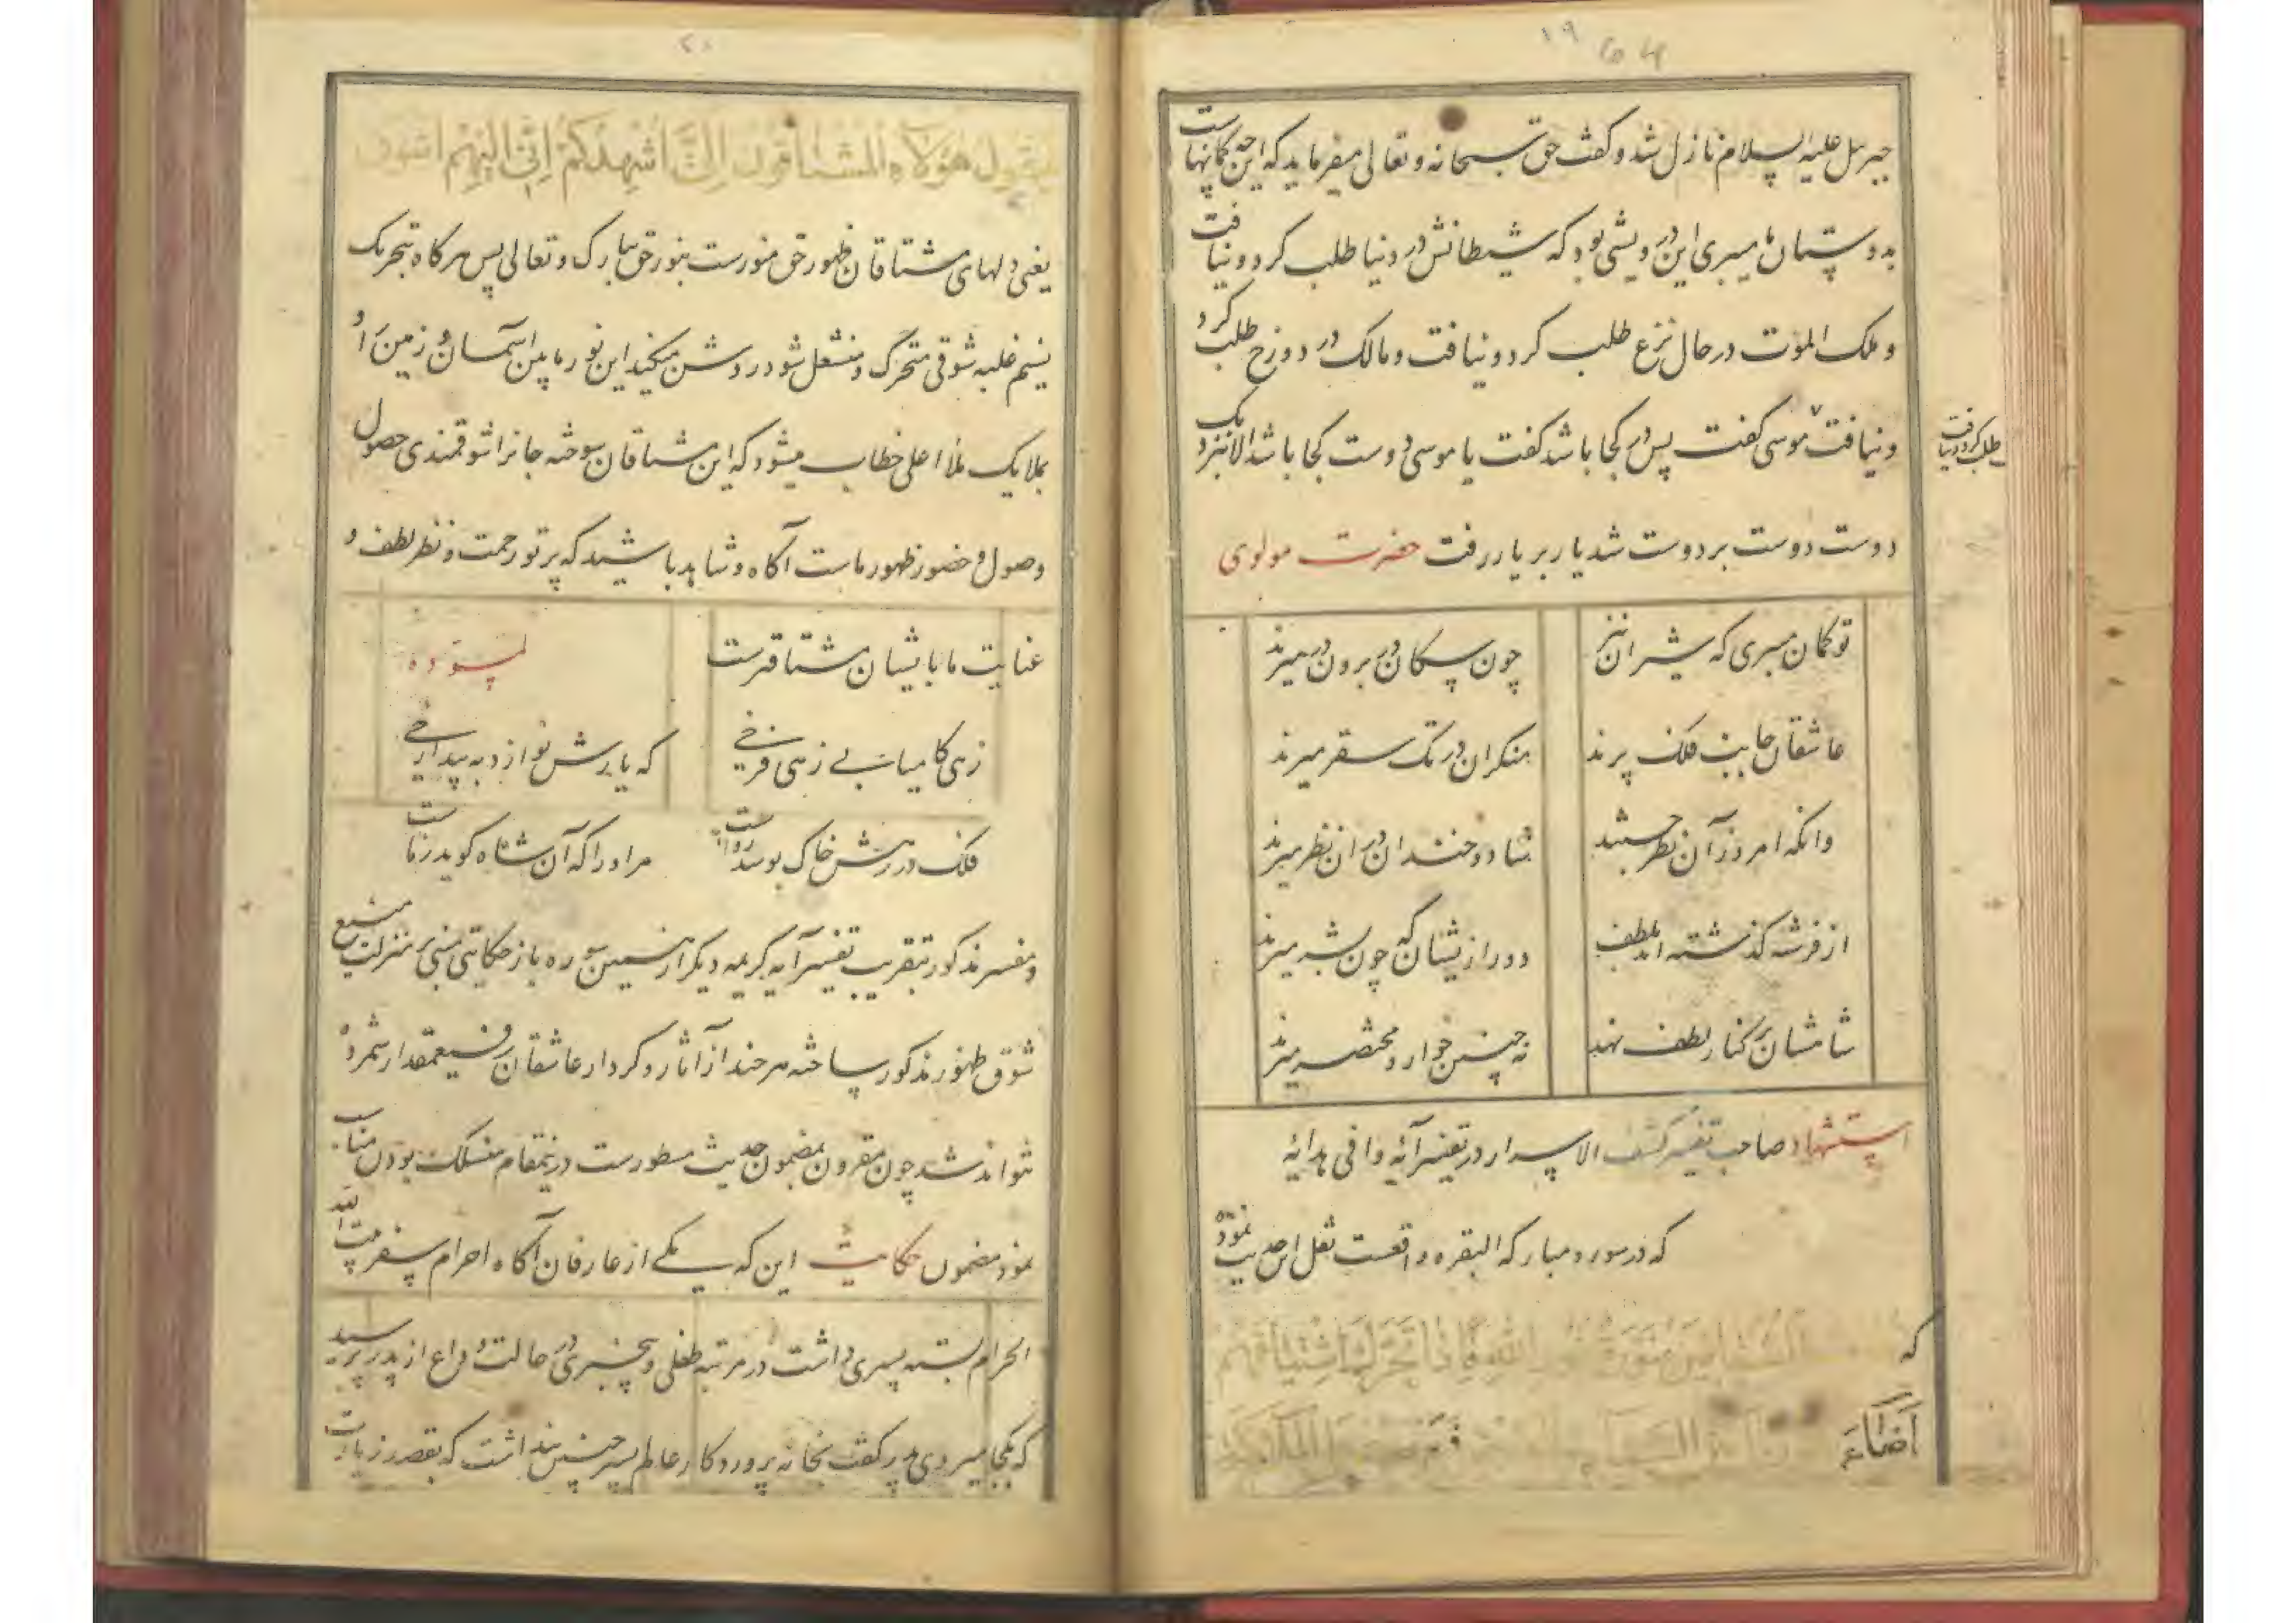 ۱۹
جبرئیل علیه السلام نازل شد و گفت حق سبحانه و تعالی میفرماید که این چه گمانهاست
بدوستان ما میبری این درویشی بود که شیطانش در دنیا طلب کرد و نیافت
و ملک الموت در حال نزع طلب کرد و نیافت و مالک در دوزخ طلب کرد
و نیافت موسی گفت پس در کجا باشد گفت یا موسی دوست کجا باشد الا نزدیک
طلب کرد و نیافت
دوست دوست بر دوست شد یار بر یار رفت حضرت مولوی
تو گمان میبری که شیران نیز چون سگان در برون در میرند
عاشقان جانب فلک پرند منکران در تک سقر میرند
وانکه امروز آن نظر جستند شاد و خندان در آن نظر میرند
از فرشته گذشته اند بلطف دور از ایشان که چون بشر میرند
شاهشان بر کنار لطف نهد نه چنین خوار و محتضر میرند
استشهاد صاحب تفسیر کشف الاسرار در تفسیر آیه وافی هدایه
که در سوره مبارکه البقره واقعست نقل این حدیث نموده
که المشتاقین منورة الله فاذا تحرک اشتیاقهم
اضاء الملائکة
۲۰
فیقول هؤلاء المشتاقون الیّ اشهدکم انّی الیهم اشوق
یعنی دلهای مشتاقان ظهور حق منورست بنور حق تبارک و تعالی پس هرگاه بتحریک
نسیم غلبه شوقی متحرک و مشتعل شود روشن میکند این نور مابین آسمان و زمین را و
بملایک ملاء اعلی خطاب میشود که این مشتاقان سوخته جانرا شوقمندی حصول
وصول و حضور ظهور ماست آگاه و شاهد باشید که پرتو رحمت و نظر لطف و
عنایت ما با یشان مشتاقترست لمسوده
زهی کامیابی زهی فرخی که یارش نوازد به پیدا رخی
فلک در رهش خاک بوسد رواست مر او را که آن شاه گوید زماست
و مفسر مذکور بتقریب تفسیر آیه کریمه دیگر از همین سوره باز حکایتی مبنی بر منزلت منیع
شوق ظهور مذکور ساخته هر چند از آثار و کردار عاشقان رفیعمقدار شمرده
نتواند شد چون مقرون بمضمون حدیث مسطورست درینمقام منسلک بودن مناسب
نمود مضمون حکایت این که یکی از عارفان آگاه احرام سفر بیت الله
الحرام بسته پسری داشت در مرتبه طفلی و بیخبری در حالت وداع از پدر پرسید
که بکجا میروی پدر گفت بخانه پروردگار عالم پسر چنین پنداشت که بقصد زیارت